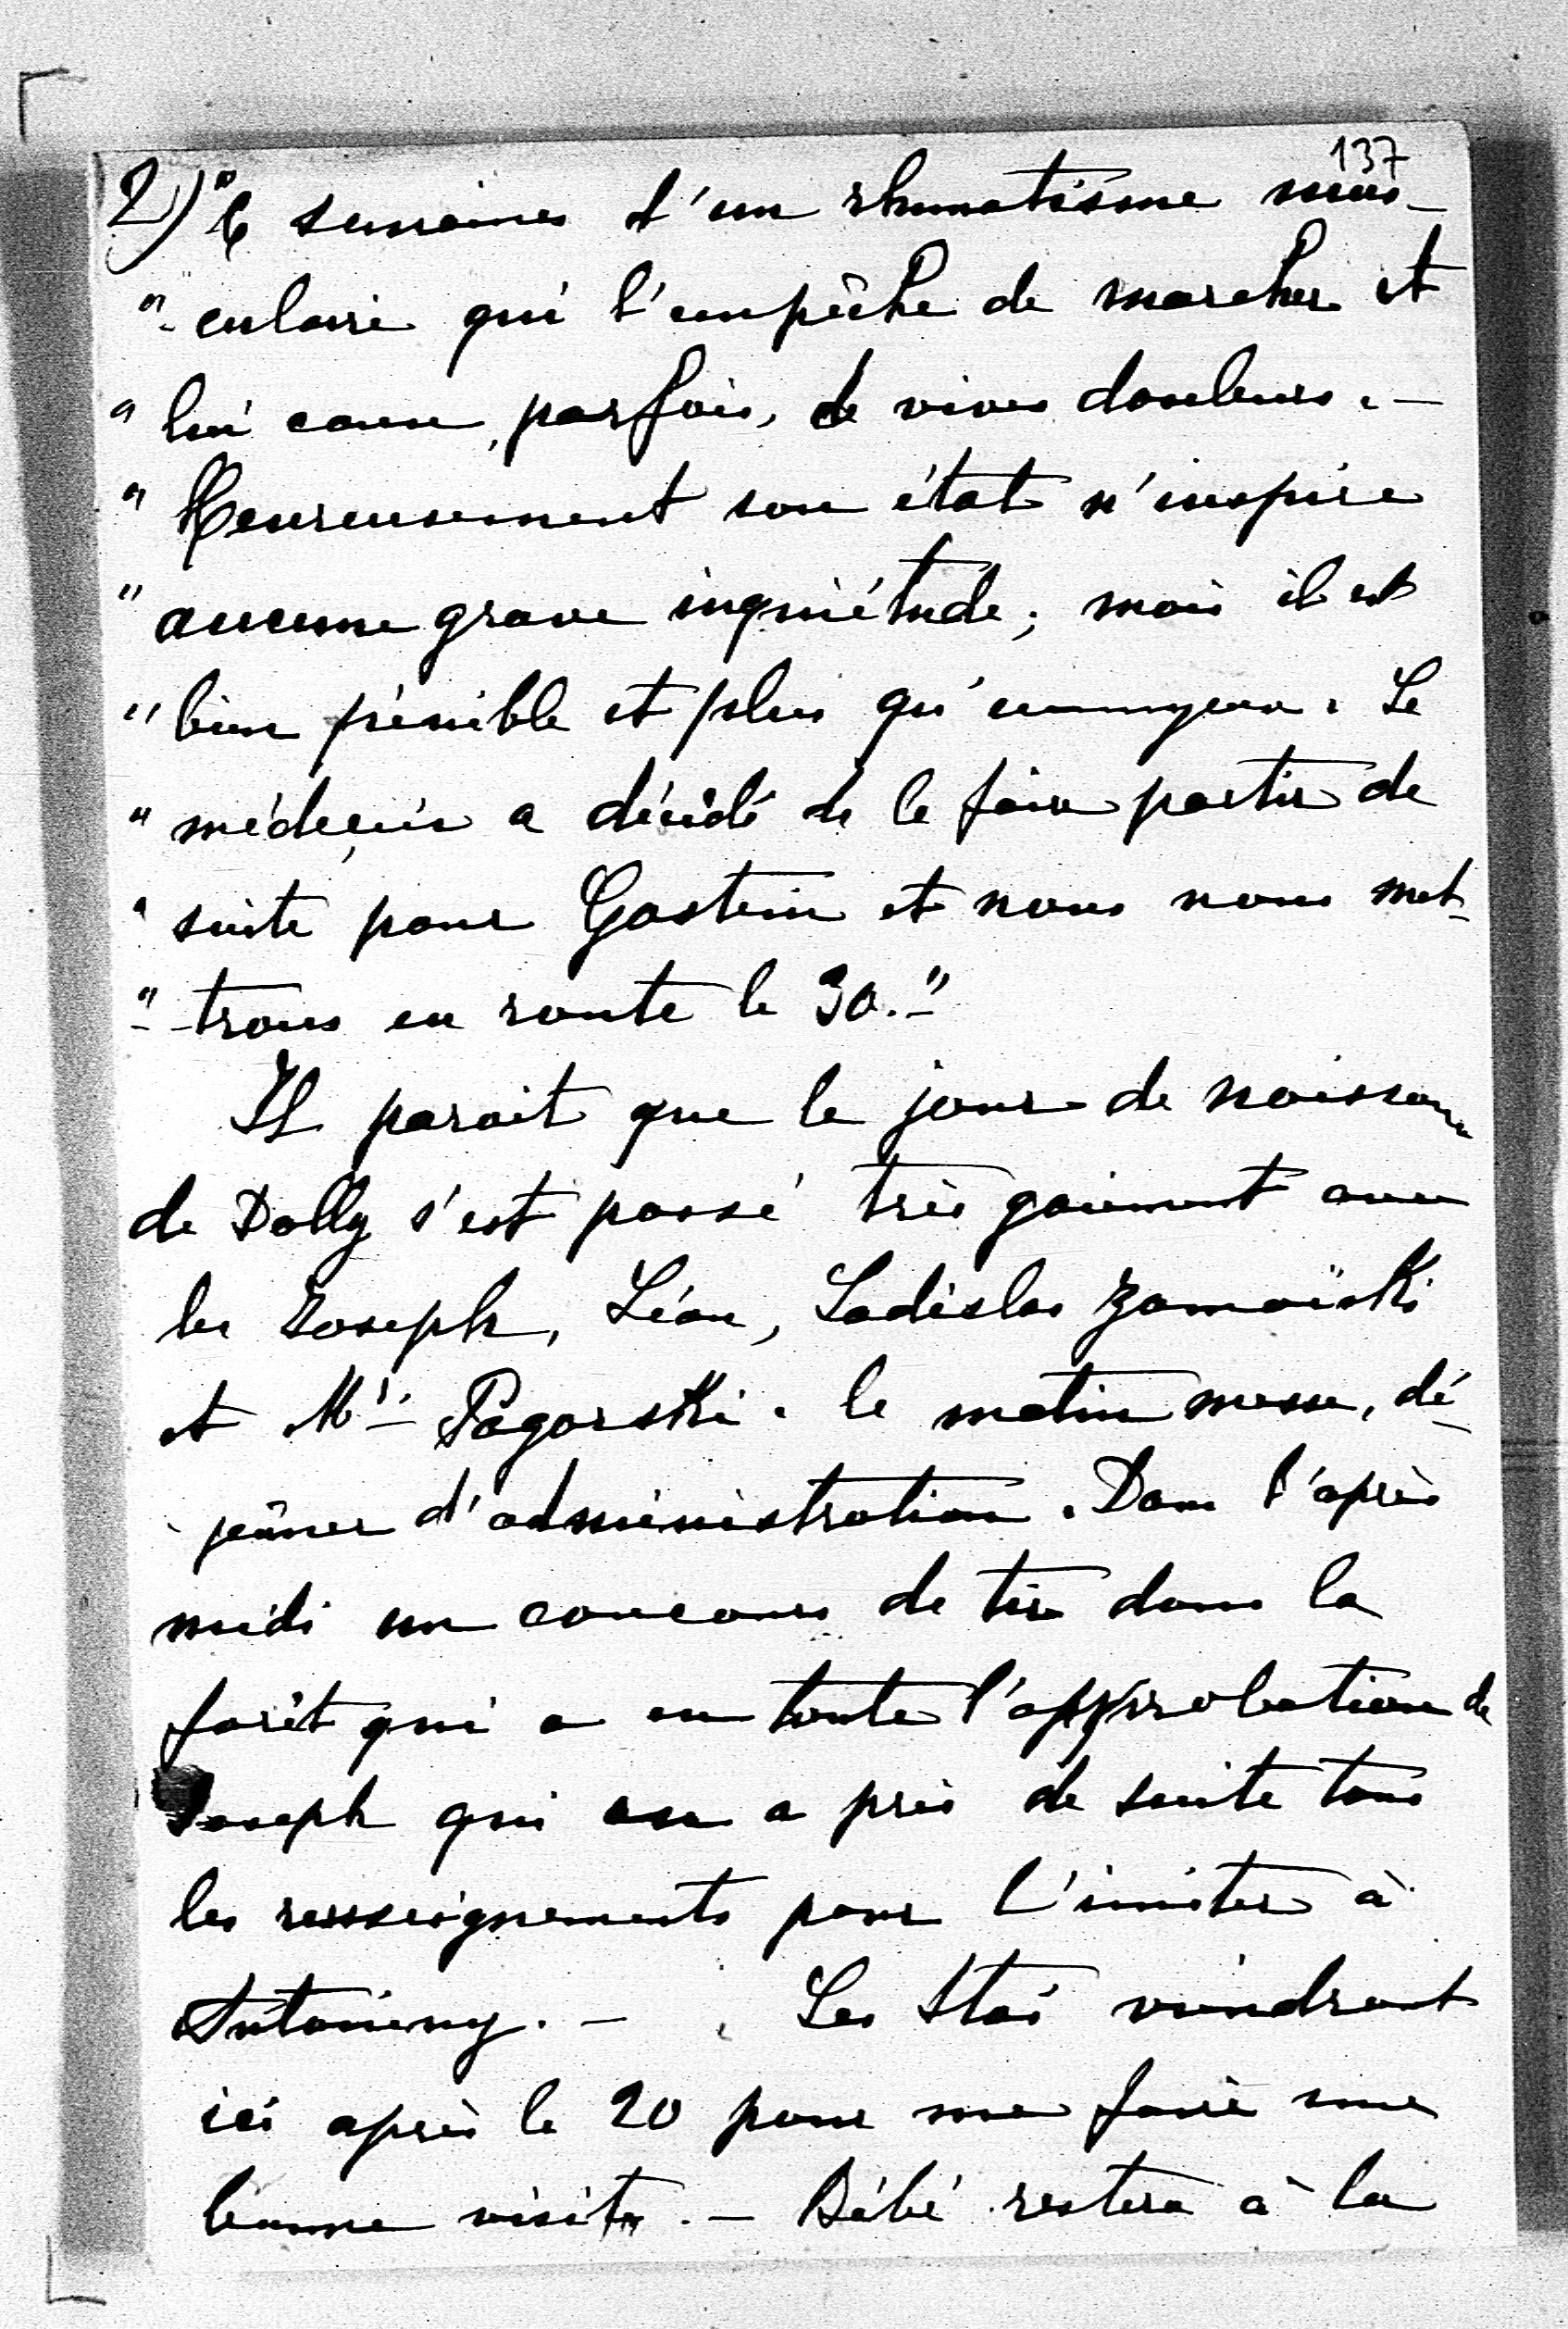 137
2) " 6 semaines d'un rhumatisme mus-
"- culaire qui l'empêche de marcher et
" lui cause, parfois, de vives douleurs. -
" Heureusement son état n'inspire
" aucune grave inquiétude; mais il est
" bien pénible et plus qu'ennuyeux. Le
" médecin a décidé de le faire partir de
" suite pour Gastein et nous nous met-
"- trons en route le 30."
Il parait que le jour de naissance
de Dolly s'est passé très gaiement avec
les Joseph, Léon, Ladislas Zamoïski
et Mr. Pagorski. le matin messe, dé-
jeûner d'administration. Dans l'après
midi un concours de tir dans la
forêt qui a eu toute l'approbation de
Joseph qui en a pris de suite tous
les renseignements pour l'imiter à
Antoniny. - Les Staś viendront
ici après le 20 pour me faire une
bonne visite. - Bébé restera à la